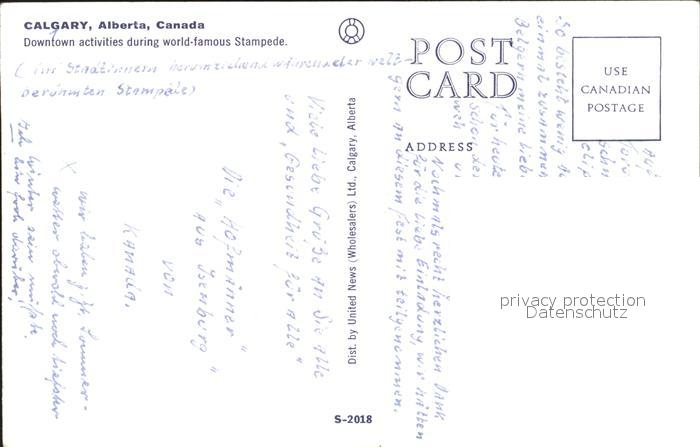 CALGARY, Alberta, Canada
Downtown activities during world-famous Stampede.
( im Stadtinnern herumziehend während der welt-
berühmten Stampede)
POST
CARD
ADDRESS
USE
CANADIAN
POSTAGE
Dist. by United News (Wholesalers) Ltd., Calgary, Alberta
S-2018
Nochmals recht herzlichen Dank
für die liebe Einladung, wir hätten
gern an diesem fest mit teilgenommen.
Viele liebe Grüße an Sie alle
und „Gesundheit für alle"
Die „Hofmänner"
aus Isenburg"
von
Kanada.
x wir haben z. Zt. Sommer-
wetter obwohl noch tiefster
Winter sein müßte.
Ich bin froh darüber,
So besteht wenig
einmal zusammen
für heute
privacy protection
Datenschutz